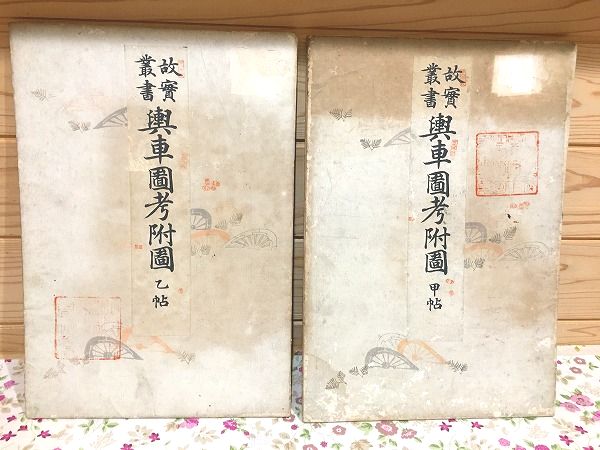 故實
叢書
輿車圖考附圖
乙帖
故實
叢書
輿車圖考附圖
甲帖